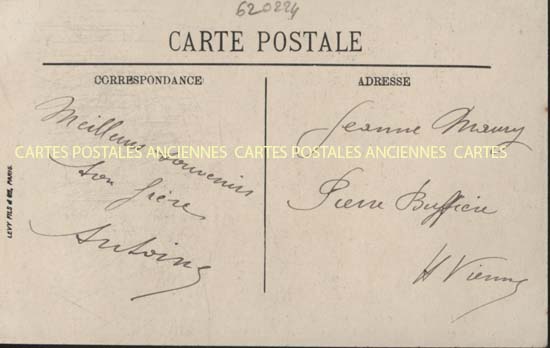 620224
CARTE POSTALE
CORRESPONDANCE
Meilleurs souvenirs
ton frère
Antoine
ADRESSE
Jeanne Maury
Pierre Buffière
H Vienne
CARTES POSTALES ANCIENNES CARTES POSTALES ANCIENNES CARTES
LEVY FILS & Cie, PARIS.